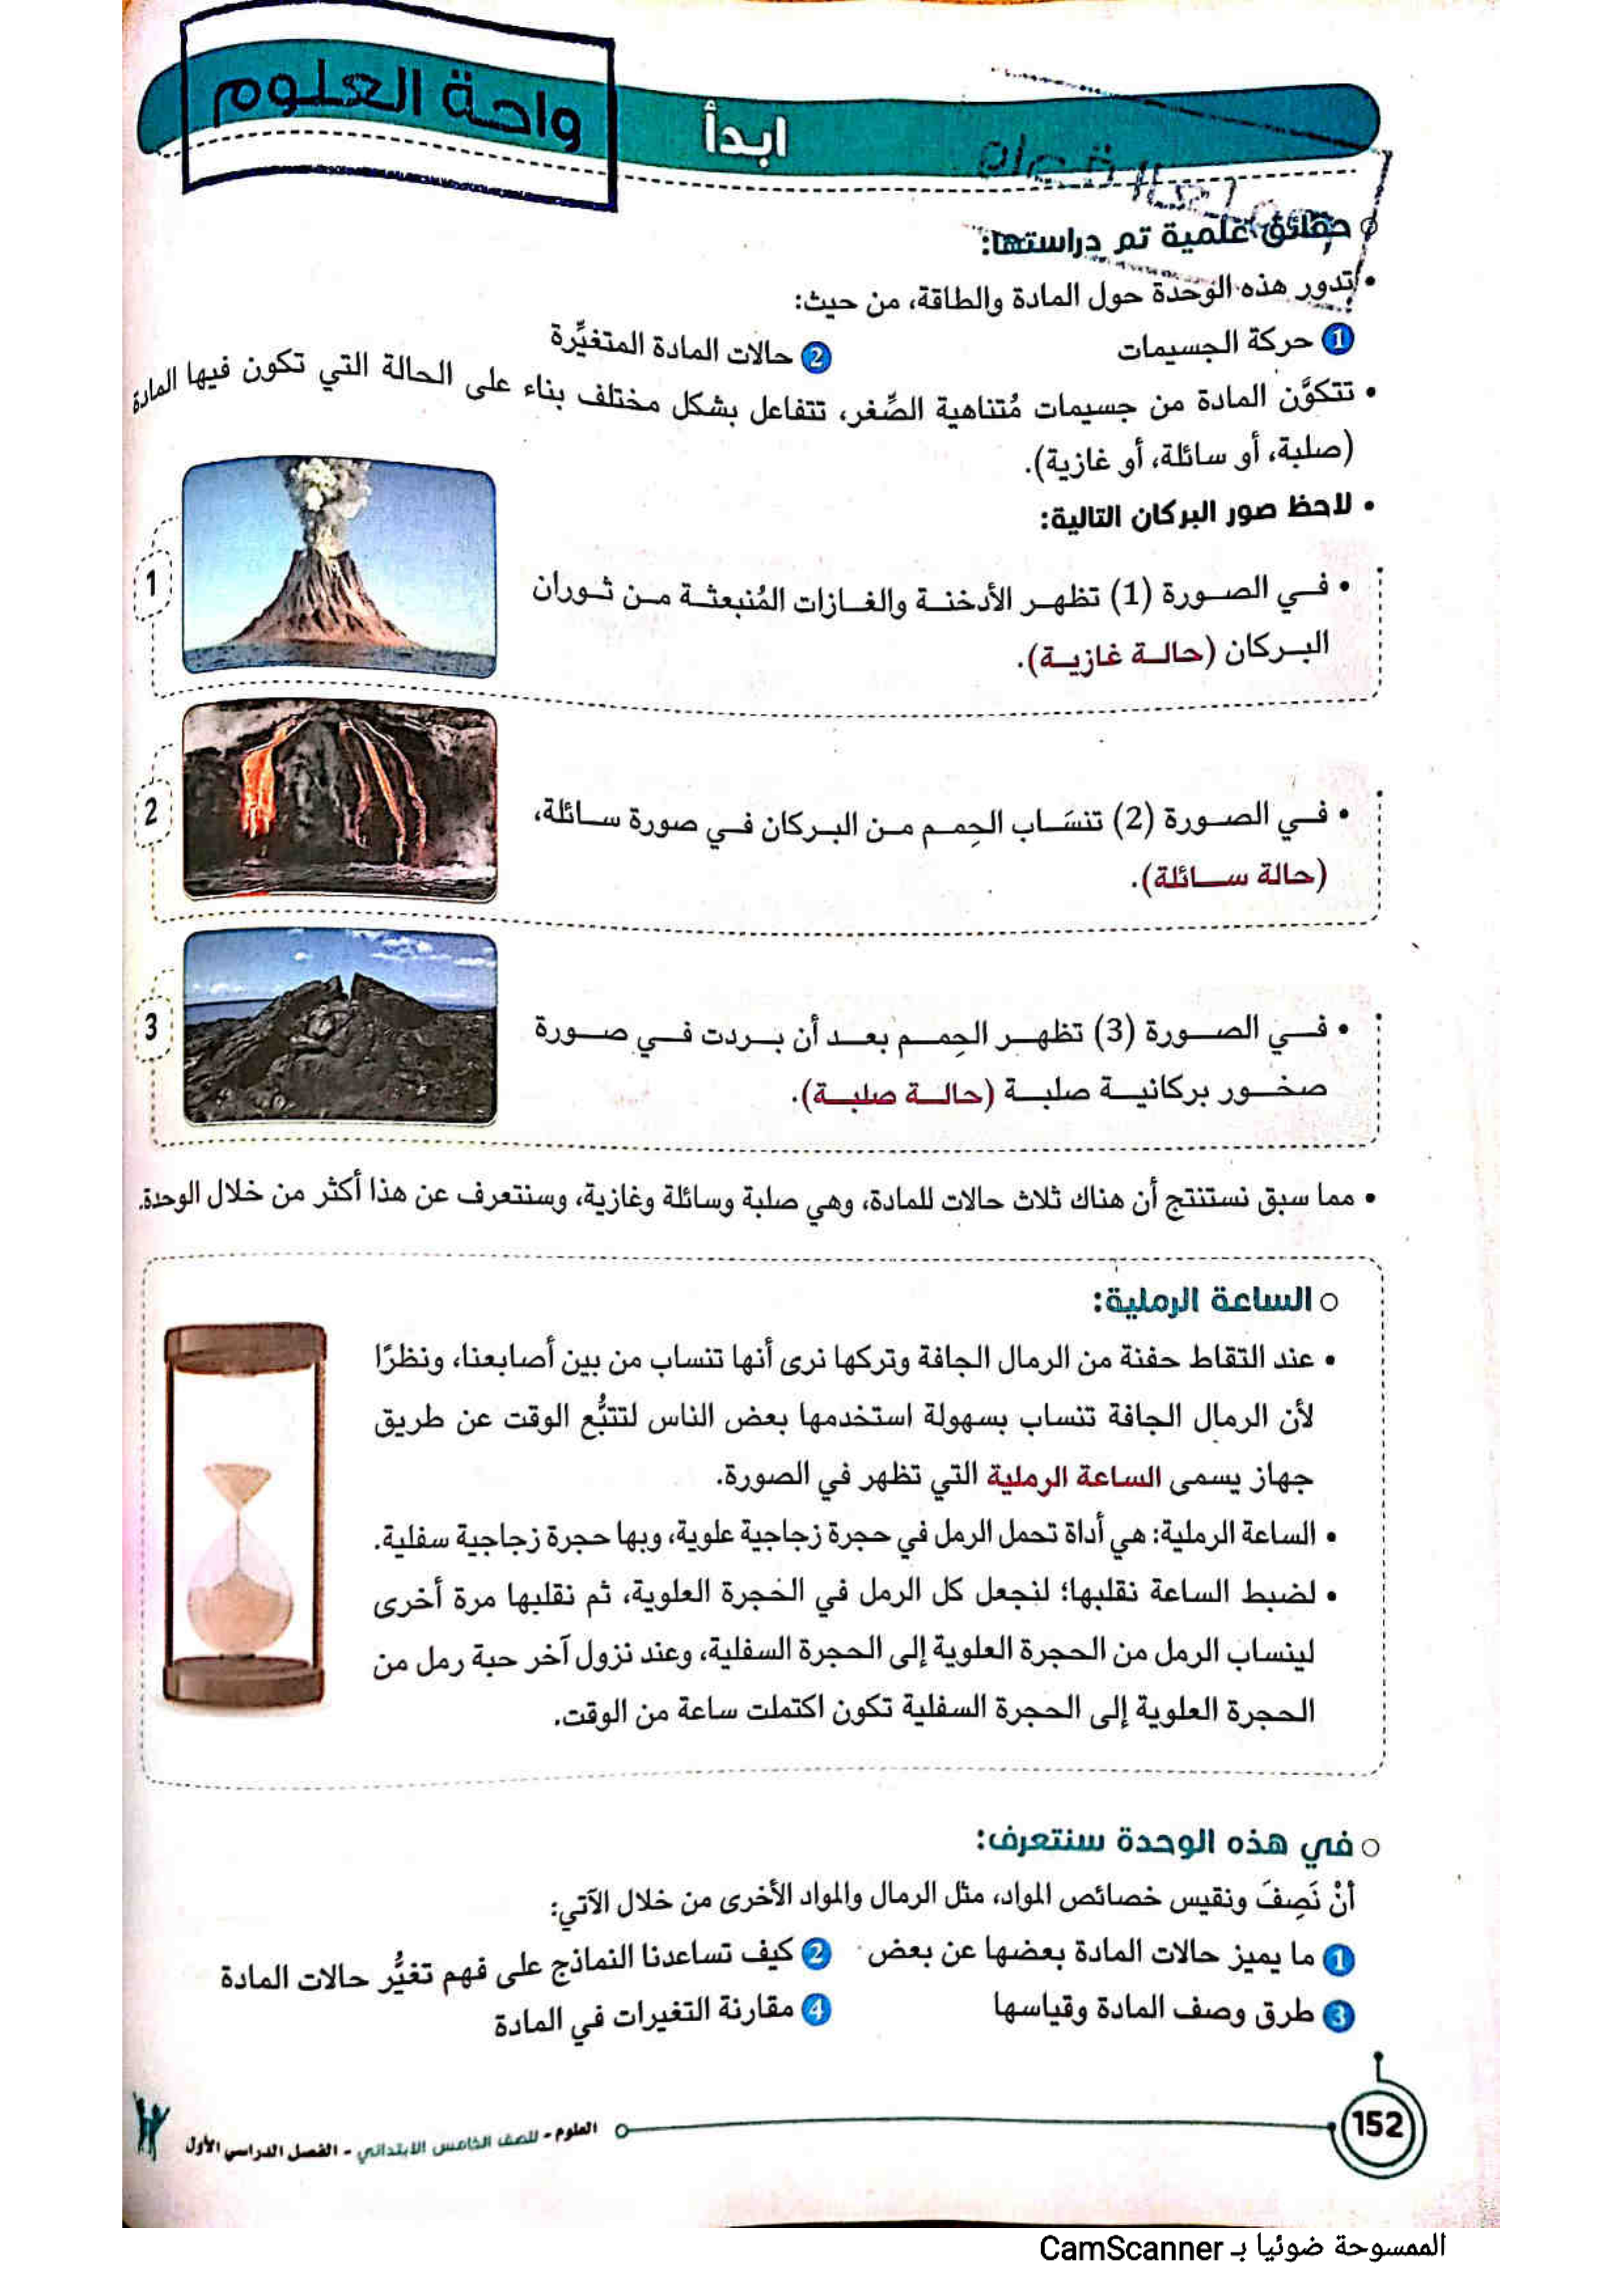 واحة العلوم
ابدأ
حقائق علمية تم دراستها:
• تدور هذه الوحدة حول المادة والطاقة، من حيث:
1 حركة الجسيمات
2 حالات المادة المتغيِّرة
• تتكوَّن المادة من جسيمات مُتناهية الصِّغر، تتفاعل بشكل مختلف بناء على الحالة التي تكون فيها المادة
(صلبة، أو سائلة، أو غازية).
• لاحظ صور البركان التالية:
1
• في الصورة (1) تظهر الأدخنة والغازات المُنبعثة من ثوران
البركان (حالة غازية).
2
• في الصورة (2) تنسَاب الحِمم من البركان في صورة سائلة،
(حالة سائلة).
3
• في الصورة (3) تظهر الحِمم بعد أن بردت في صورة
صخور بركانية صلبة (حالة صلبة).
• مما سبق نستنتج أن هناك ثلاث حالات للمادة، وهي صلبة وسائلة وغازية، وسنتعرف عن هذا أكثر من خلال الوحدة.
الساعة الرملية:
• عند التقاط حفنة من الرمال الجافة وتركها نرى أنها تنساب من بين أصابعنا، ونظرًا
لأن الرمال الجافة تنساب بسهولة استخدمها بعض الناس لتتبُّع الوقت عن طريق
جهاز يسمى الساعة الرملية التي تظهر في الصورة.
• الساعة الرملية: هي أداة تحمل الرمل في حجرة زجاجية علوية، وبها حجرة زجاجية سفلية.
• لضبط الساعة نقلبها؛ لنجعل كل الرمل في الحُجرة العلوية، ثم نقلبها مرة أخرى
لينساب الرمل من الحجرة العلوية إلى الحجرة السفلية، وعند نزول آخر حبة رمل من
الحجرة العلوية إلى الحجرة السفلية تكون اكتملت ساعة من الوقت.
في هذه الوحدة سنتعرف:
أنْ نَصِفَ ونقيس خصائص المواد، مثل الرمال والمواد الأخرى من خلال الآتي:
1 ما يميز حالات المادة بعضها عن بعض
2 كيف تساعدنا النماذج على فهم تغيُّر حالات المادة
3 طرق وصف المادة وقياسها
4 مقارنة التغيرات في المادة
152
العلوم - للصف الخامس الابتدائي - الفصل الدراسي الأول
الممسوحة ضوئيا بـ CamScanner